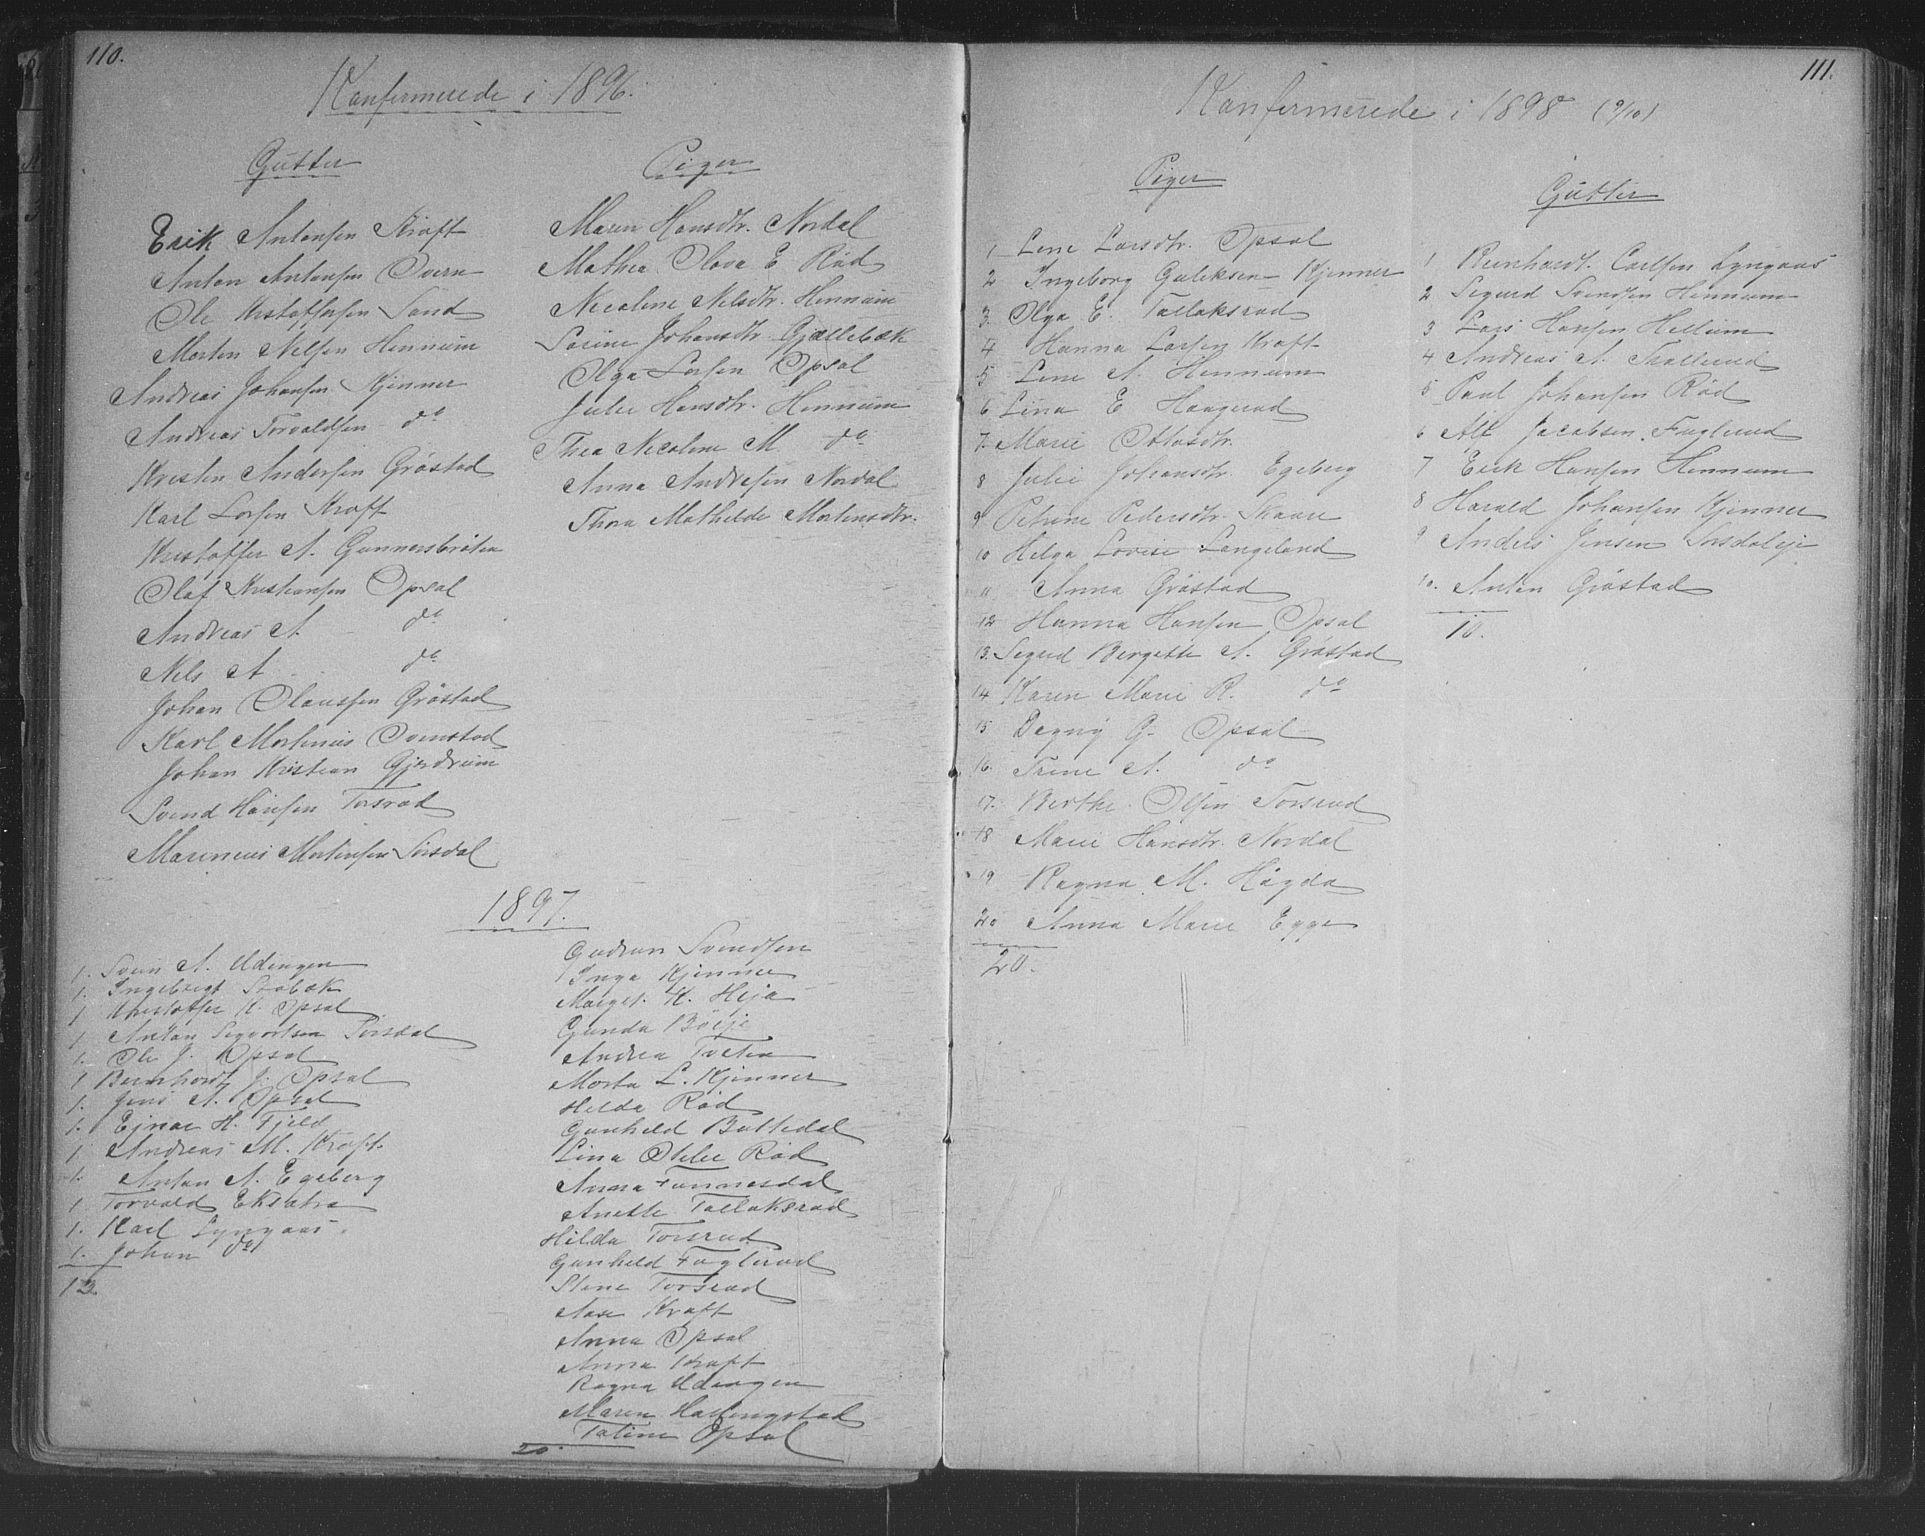 110.
Konfirmerede i 1896.
Gutter
Erik Antonsen Kraft
Anton Antonsen Overn
Ole Kristoffersen Sand
Morten Nilsen Hennum
Andreas Johansen Kjinner
Andreas Torvaldsen do
Kristen Andersen Gröstad
Karl Larsen Kraft
Kristoffer A. Gunnersbråten
Olaf Kristiansen Opsal
Andreas A. do
Nils A. do
Johan Olaussen Gröstad
Karl Martinius Svenstad
Johan Kristian Gjerdrum
Svend Hansen Torsrud
Marinius Mortensen Sørsdal
Piger
Maren Hansdtr. Nordal
Mathea Olava E Röd
Nicoline Nilsdtr. Hennum
Sörine Johansdtr. Gjællebæk
Olga Larsen Opsal
Julie Hansdtr. Hennum
Thea Nicoline M. do
Anna Andresen Nordal
Thora Mathilde Mortensdtr.
1897.
1. Svein A. Udengen
1. Ingebrigt Stabæk
1 Kristoffer K. Opsal
1 Anton Sigvartsen Sørsdal
1. Ole J. Opsal
1 Bernhardt J. Opsal
1. Jens A. Opsal
1. Ejnar H. Fjeld
1 Andreas M. Kraft
1. Anton A. Egeberg
1 Torvald Eksætra
1. Karl Lyngaas.
1. Johan do
13.
Gudrun Svendsen
Inga Kjinner
Marget. K. Heja
Gunda Böeje
Andrea Tveten
Marta L. Kjinner
Hilda Röd
Gunhild Buttedal
Lina Otilie Röd
Anna Tannesdal
Anette Tallaksrud
Hilda Torsrud
Gunhild Faglerud
Stine Torsrud
Aase Kraft
Anna Opsal
Anna Kraft
Ragna Udengen
Maren Hallingstad
Taline Opsal
20.
111.
Konfirmerede i 1898 (9/10)
Piger
1 Lene Larsdtr. Opsal
2 Ingeborg Guliksen Kjinner
3. Olga E. Tallaksrud
4 Hanna Larsen Kraft
5 Lene A. Hennum
6 Lina E Haagerud
7. Marie Ottosdtr.
8 Julie Johansdtr. Egeberg
9 Petrine Pedersdtr. Skaare
10 Helga Lovise Langeland
11 Anna Gröstad
12 Hanna Hansen Opsal
13. Sigrid Bergitte A. Gröstad
14 Karen Marie R. do
15 Dagny G. Opsal
16. Trine A. do
17. Berthe Olsen Torsrud
18 Marie Hansdtr. Nordal
19 Ragna M. Högda
20 Anna Marie Egge
20.
Gutter
1 Bernhardt Carlsen Lyngaas
2 Sigurd Svendsen Hennum
3 Lars Hansen Hellum
4 Andreas A. Thallerud
5 Paul Johansen Röd
6 Alf Jacobsen Faglerud
7 Erik Hansen Hennum
8 Harald Johansen Kjinner
9 Anders Jensen Sørsdaleje
10. Anton Gröstad
10.